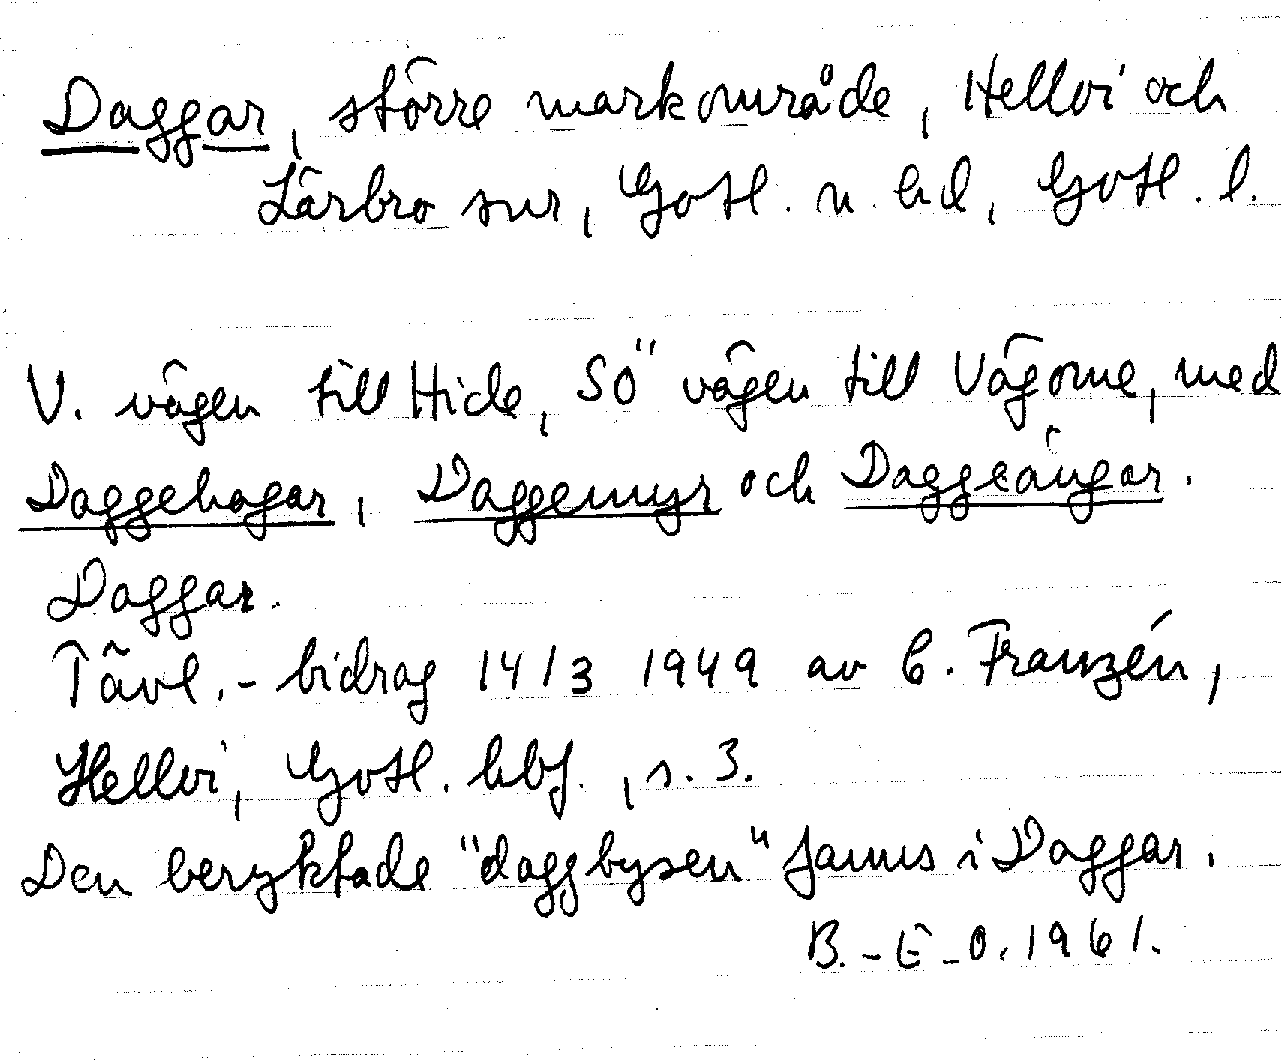 Daggar, större markområde, Hellvi och
Lärbro snr, Gotl. n. hd, Gotl. l.
V. vägen till Hide, SÖ vägen till Vägome, med
Daggehagar, Daggemyr och Daggeängar.
Daggar.
Tävl.- bidrag 14/3 1949 av C. Franzén,
Hellvi, Gotl. hbf., s. 3.
Den beryktade "daggbysen" fanns i Daggar.
B.-E-O. 1961.